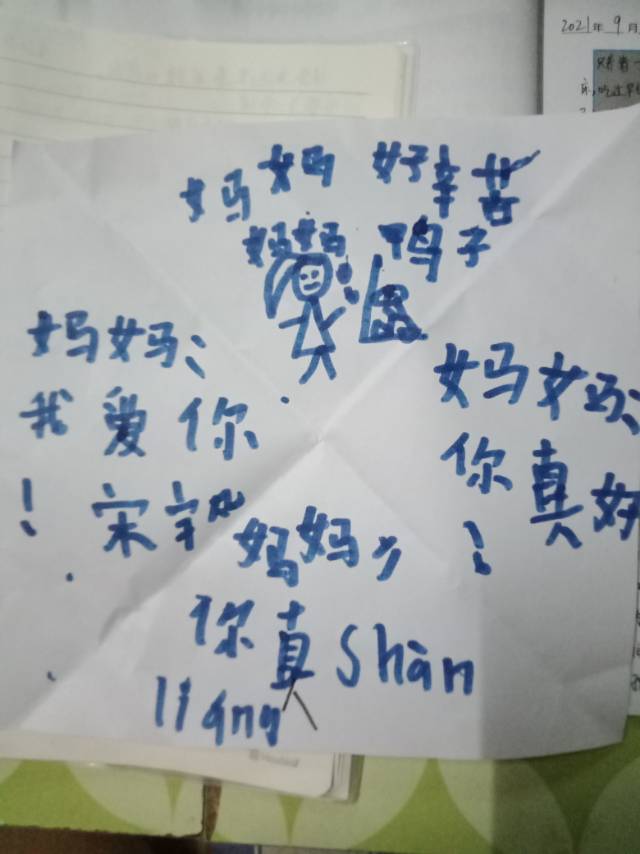 2021年9月
妈妈 好辛苦
妈妈 鸭子
妈妈、
我爱你
！宋
妈妈、
你真好
！
妈妈，
你真shàn
liáng